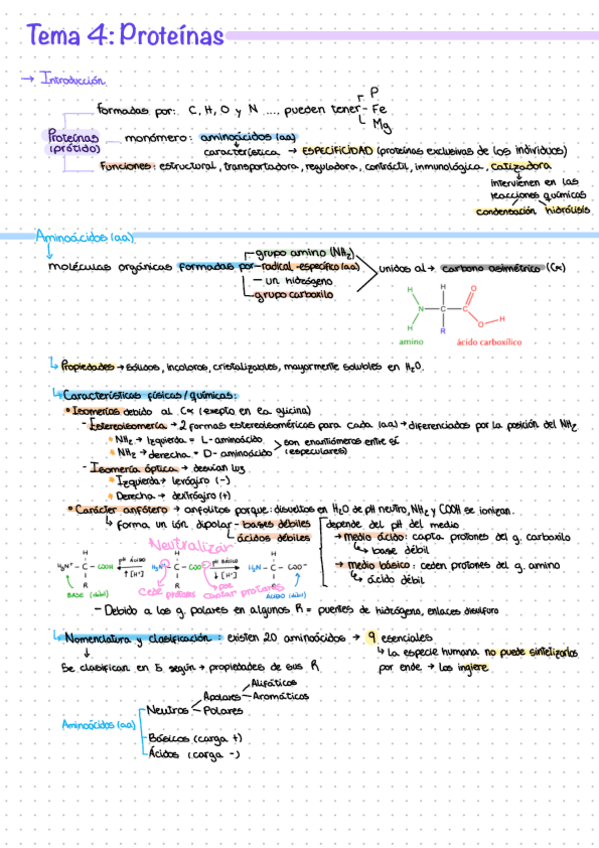 Tema 4: Proteínas
→ Introducción
Proteínas (prótido)
formadas por: C, H, O y N ...., pueden tener - P Fe Mg
monómero: aminoácidos (aa)
característica → ESPECIFICIDAD (proteínas exclusivas de los individuos)
Funciones: estructural, transportadora, reguladora, contráctil, inmunológica, catizadora
intervienen en las
reacciones químicas
condensación hidrólisis
Aminoácidos (aa)
moléculas orgánicas formadas por
grupo amino (NH2)
radical - específico (aa)
un hidrógeno
grupo carboxilo
unidos al → carbono asimétrico (Cα)
H H O
N C C
H R O H
amino ácido carboxílico
Propiedades → sólidos, incoloros, cristalizables, mayormente solubles en H2O.
Características físicas / químicas:
• Isomerías debido al Cα (exepto en la glicina)
- Estereoisomería → 2 formas estereoisoméricos para cada (aa) → diferenciados por la posición del NH2
• NH2 → Izquierda = L-aminoácido
• NH2 → derecha = D-aminoácido
son enantiómeros entre sí
(especulares)
- Isomería óptica → desvían luz
• Izquierda → levógiro (-)
• Derecha → dextrógiro (+)
• Carácter anfótero → anfolitos porque: disueltos en H2O de pH neutro, NH2 y COOH se ionizan.
↳ forma un ión dipolar - bases débiles
ácidos débiles
depende del pH del medio
→ medio ácido: capta protones del g. carboxilo
↳ base débil
→ medio básico: ceden protones del g. amino
↳ ácido débil
Neutralizar
H H H
H3N+ - C - COOH pH ÁCIDO ↑[H+] H3N+ - C - COO- pH BÁSICO ↓[H+] H2N - C - COO-
R R R
BASE (débil) Cede protones por captar protones ÁCIDO (débil)
- Debido a los g. polares en algunos R = puentes de hidrógeno, enlaces disulfuro
Nomenclatura y clasificación: existen 20 aminoácidos → 9 esenciales
↳ la especie humana no puede sintetizarlos
por ende → los ingiere
Se clasifican en 5 según → propiedades de sus R
Aminoácidos (aa)
Alifáticos
Apolares - Aromáticos
Neutros - Polares
Básicos (carga +)
Ácidos (carga -)